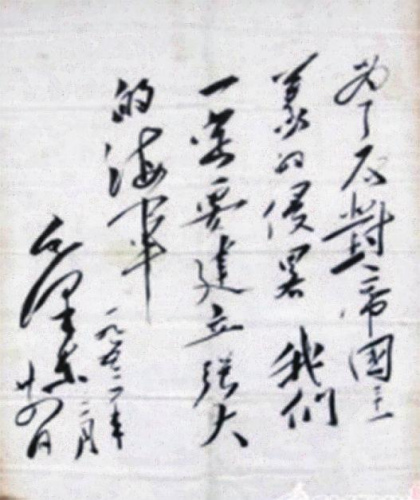 为了反對帝國主
義的侵畧我們
一定要建立强大
的海軍
毛澤東
一九五三年
二月
廿四日